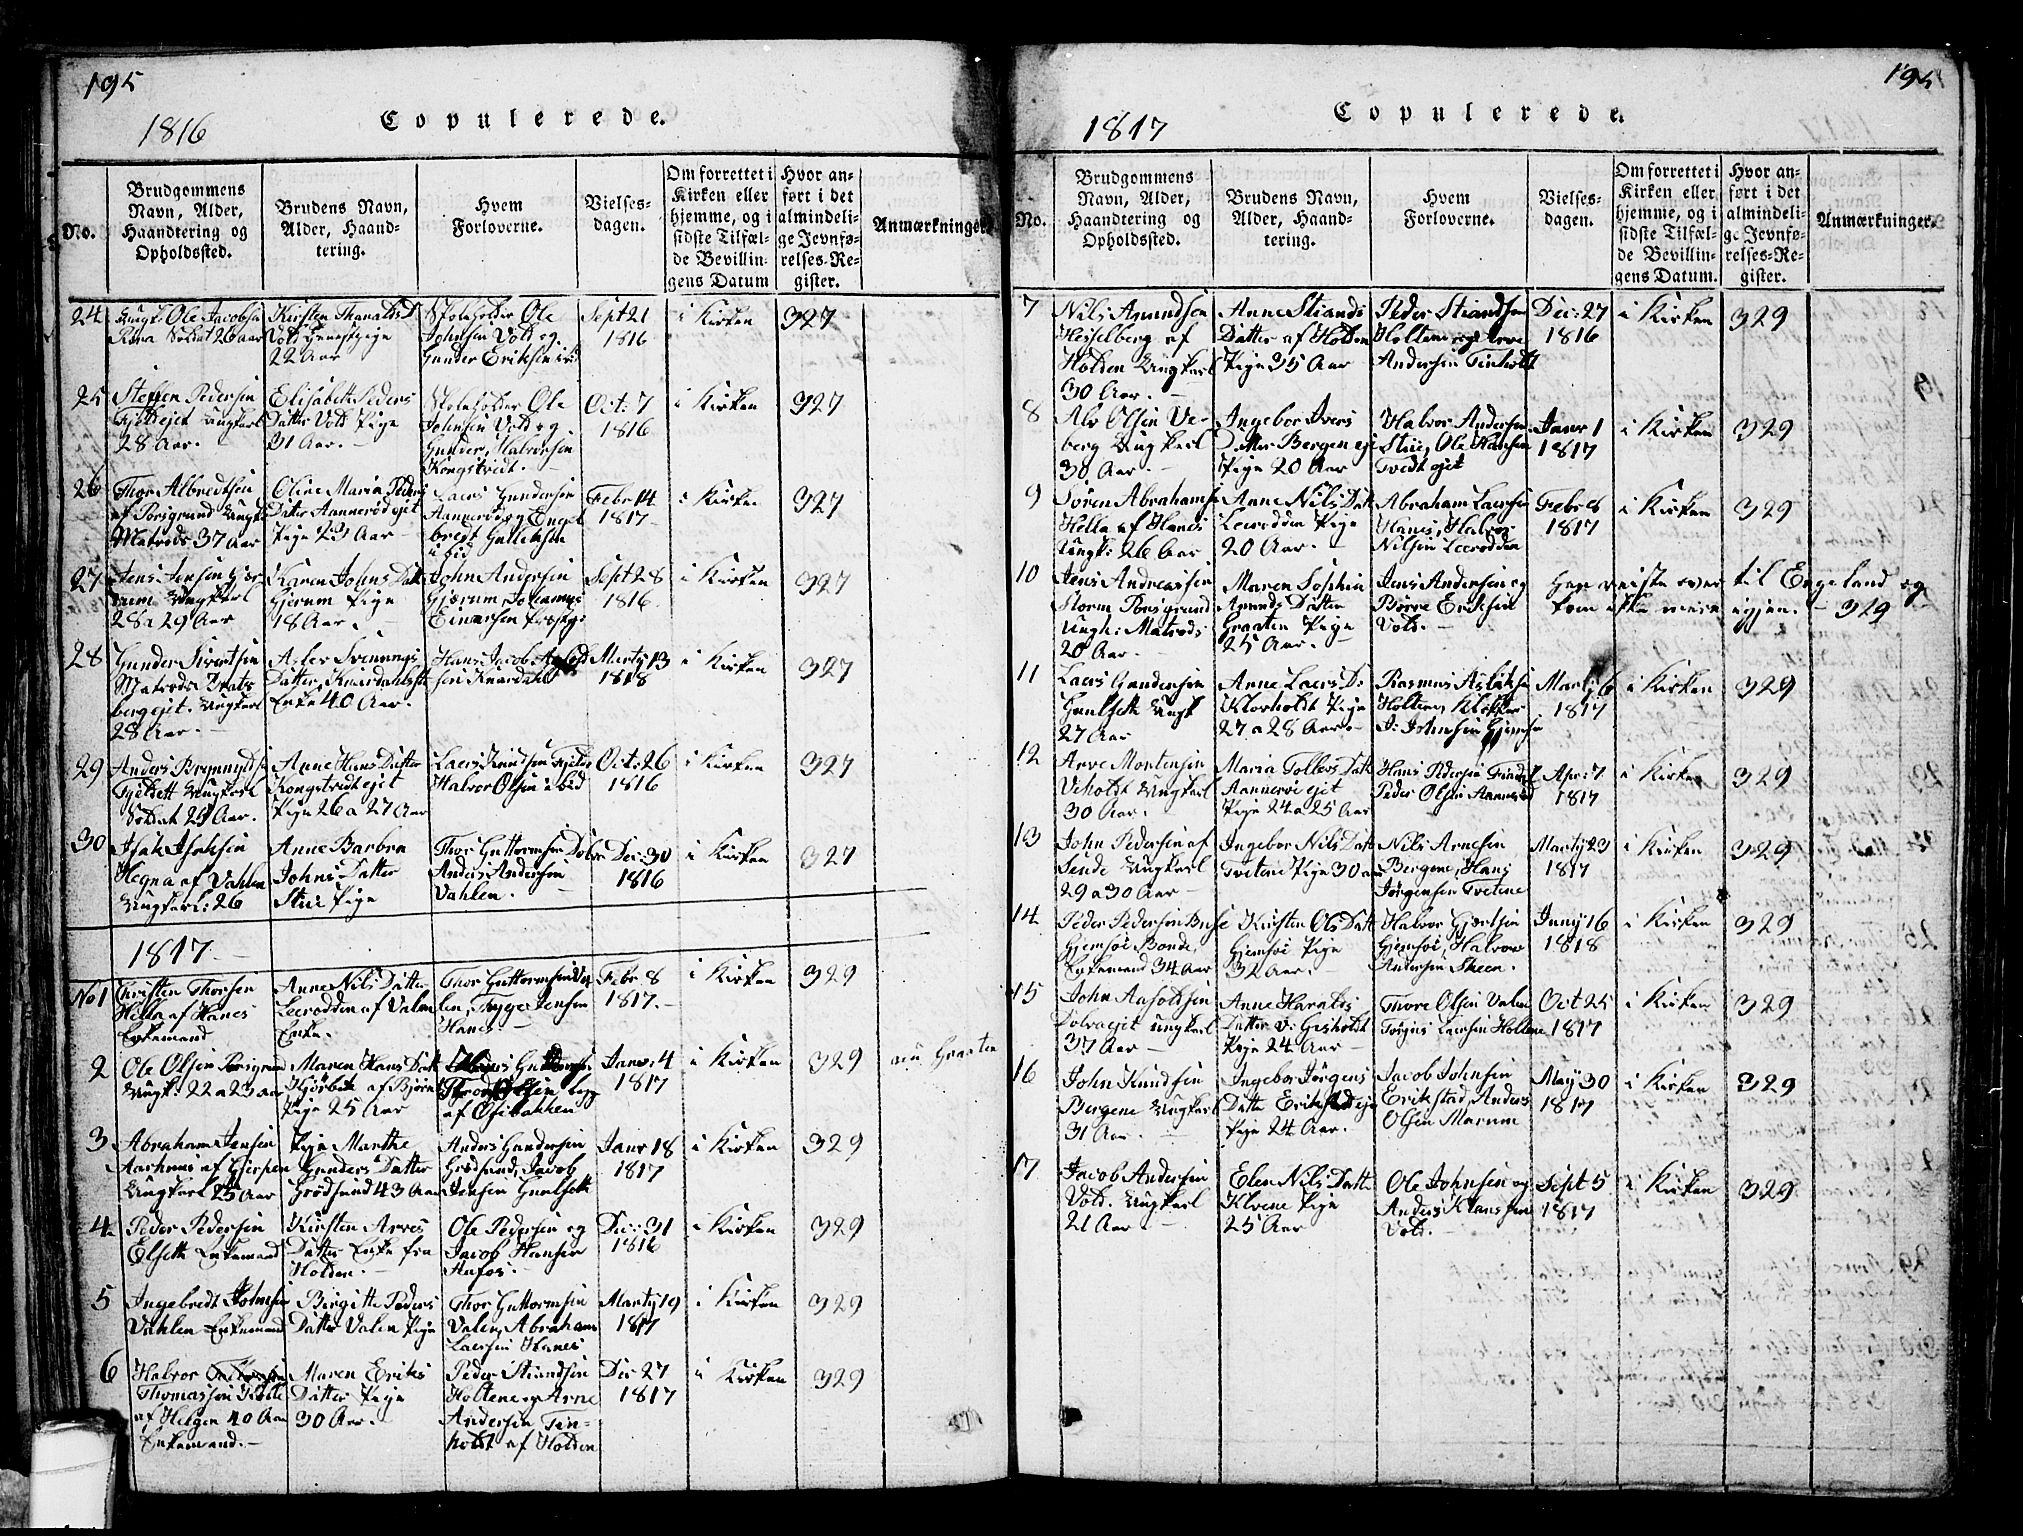 195
1816
Copulerede.
No.
Brudgommens
Navn, Alder,
Haandtering og
Opholdssted.
Brudens Navn,
Alder, Haand-
tering.
Hvem
Forloverne.
Vielses-
dagen.
Om forrettet i
Kirken eller
hjemme, og i
sidste Tilfæl-
de Bevillin-
gens Datum
Hvor an-
ført i det
almindeli-
ge Jevnfø-
relses-Re-
gister.
Anmærkninger.
24
Ungk: Ole Jacobsen
Soldat 26 aar
Kirsten
Vold Pige
22 Aar
Skoleholder Ole
Johnsen Vold og
Gunder Eriksen
Sept 21
1816
i Kirken
327
25
Steffen Pedersen
Fjeldejet Ungkarl
28 Aar.
Elisabeth Peders
Datter Vold Pige
31 Aar.
Skoleholder Ole
Johnsen Vold og
Gunder Halvorsen
Kongstvedt.
Oct: 7
1816
i Kirken
327
26
Thor Albredtsen
af Porsgrund Ungk:
Matrods 37 Aar
Oline Maria Peders
Datter Aannerød ejet
Pige 23 Aar
Laers Gundersen
Aannerød og Engel
bregt Gulleksen
ibid
Febr 14
1817
i Kirken
327
27
Jens Jensen Gje-
rum Ungkarl
28 a 29 Aar
Karen Johns Datt
Gjerum Pige
18 Aar.
John Andersen
Gjerum, Johannes
Einersen
Sept 28
1816
i Kirken
327
28
Gunder Sivertsen
Matrods Brats
bergejet. Ungkarl
28 Aar.
Aslev Svennings
Datter, Knardalst
Enke 40 Aar.
Hans Jacob
sen Knardal
Marty 13
1818
i Kirken
327
29
Anders Brynnyldsen
Fjeldet Ungkarl
Soldat 25 Aar.
Anne Hans Datter
Kongstvedt ejet
Pige 26 a 27 Aar
Laers Knudsen
Halvor Olsen ibid
Oct: 26
1816
i Kirken
327
30
Isak Isaksen
Hegna af Vahlen
Ungkarl: 26
Anne Barbra
Johns Datter
Stue Pige
Thor Guttormsen
Anders Andersen
Vahlen.
Dec: 30
1816
i Kirken
327
1817.
No 1
Christen Thorsen
Hella af Hanes
Enkemand
Anne Nils Datter
Leerodden af Valen
Enke.
Thor Guttormsen Va
len, Tygge Jensen
Hanes
Febr 8
1817.
i Kirken
329
2
Ole Olsen Porsgrund
Ungk: 22 a 23 aar
Maren Hans Datt
Kjørbek af Bjørn
Pige 25 Aar
af Osebakken
Janv: 4
1817
i Kirken
329
nu Graaten
3
Abraham Jensen
Aarhuus af Gjerpen
Ungkarl 25 Aar
Pige Marthe
Gunders Datter
Grødsund 43 Aar
Anders Gundersen
Grødsund, Jacob
Jensen Gunlseth
Janv 18
1817
i Kirken
329
4
Peder Pedersen
Elseth Enkemand
Kirsten Arves
Datter Enke fra
Holden.
Ole Pedersen og
Jacob Hansen
Aafos.
Dec: 31
1816
i Kirken
329
5
Ingebredt Johnsen
Vahlen Enkemand
Birgitte Peders
Datter Valen Pige
Thor Guttormsen
Valen, Abraham
Laersen Hanes
Marty 19
1817
i Kirken
329
6
Halvor
Thomassen
af Helgen 40 Aar
Enkemand.
Maren Eriks
Datter Pige
30 Aar.
Peder Stiandsen
Holtene og Arne
Andersen Tin-
holdt af Holden
Dec 27
1817
i Kirken
329
195
1817
Copulerede.
No.
Brudgommens
Navn, Alder,
Haandtering og
Opholdssted.
Brudens Navn,
Alder, Haand-
tering.
Hvem
Forloverne.
Vielses-
dagen.
Om forrettet i
Kirken eller
hjemme, og i
sidste Tilfæl-
de Bevillin-
gens Datum.
Hvor an-
ført i det
almindeli-
ge Jevnfø-
relses-Re-
gister.
Anmærkninger.
7
Nils Amundsen
Hesselberg af
Holden Ungkarl
30 Aar.
Anne Stiands
Datter af Holden
Pige 35 Aar
Peder Stiandsen
Holtene og Arne
Andersen Tinholt
Dec: 27
1816
i Kirken
329
8
Alv Olsen Ve-
berg Ungkarl
30 Aar.
Ingebor Ivers
Datter Bergen eje
Pige 20 Aar
Halvor Andersen
Stue, Ole Hansen
Tvedt ejet
Janv 1
1817
i Kirken
329
9
Søren Abrahamsen
Hella af Hanes
Ungk: 26 Aar
Anne Nils Datt
Leerodden Pige
20 Aar.
Abraham Laersen
Hanes, Halvor
Nilsen Leerodden
Febr 8
1817
i Kirken
329
10
Jens Andreassen
Storm Porsgrund
Ungk: Matrods
20 Aar.
Maren Sophia
Arends Datter
Graaten Pige
25 Aar.
Jens Andersen og
Børre Eriksen
Vold.
Han reiste over til Engeland og
kom ikke mere igjen. - 329
11
Laers Gundersen
Gunlseth Ungk
27 Aar
Anne Laers D:
Klovholdt Pige
27 a 28 Aar.
Rasmus Aslaksen
Holtene, Klokker
J: Johnsen Gjemsø
Marty 6
1817
i Kirken
329
12
Arve Mortensen
Veholdt Ungkarl
30 Aar.
Maria Tollevs Datt
Aannerø ejet
Pige 24 a 25 Aar
Hans Pedersen
Peder Olsen Aannerød
Apr: 7
1817
i Kirken
329
13
John Pedersen af
Sende Ungkarl
29 a 30 Aar
Ingebor Nils Datt
Tvetene Pige 30 aar
Nils Arnesen
Bergene, Hans
Jørgensen Tvetene
Marty 23
1817
i Kirken
329
14
Peder Pedersen
Gjemsøe Bonde
Enkemand 34 Aar
Kirsten Ols Datt
Gjemsøe Pige
32 Aar.
Halvor Gjertsen
Gjemsøe, Halvor
Andersen Skeen.
Juny 16
1818
i Kirken
329
15
John Ansoldsen
Dolvaejet Ungkarl
37 Aar
Anne Haralds
Datter V: Gisholdt
Pige 24 Aar
Thore Olsen Valen
Torgus Laersen Holtene
Oct 25
1817
i Kirken
329
16
John Knudsen
Bergene Ungkarl
31 Aar.
Ingebor Jørgens
Datte Erikstad eje
Pige 24 Aar.
Jacob Johnsen
Erikstad, Anders
Olsen Marum
May 30
1817
i Kirken
329
17
Jacob Andersen
Vold. Ungkarl
21 Aar
Elen Nils Datt
Klevene Pige
25 Aar
Ole Johnsen og
Anders Klausen
Vold.
Sept 5
1817
i Kirken
329